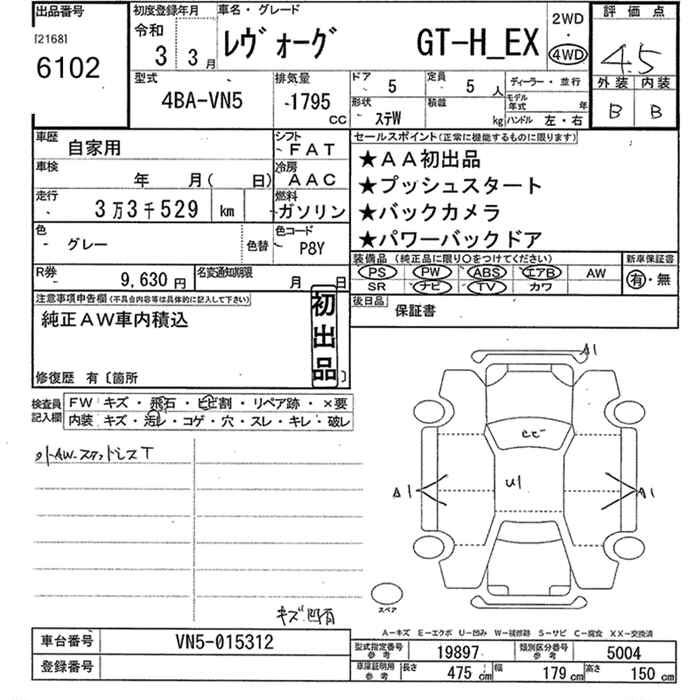 出品番号
[2168]
6102
初度登録年月
令和
3 3月
車名・グレード
レヴォーグ GT-H_EX
2WD
・
4WD
評価点
4.5
外装 内装
B B
型式
4BA-VN5
排気量
1795
CC
ドア
5
定員
5 人
形状
ステW
積載
kg
ディーラー・並行
モデル年式 年
ハンドル 左・右
車歴
自家用
シフト
FAT
車検
年 月( 日)
冷房
AAC
走行
3万3千529 km
燃料
ガソリン
色
グレー
色替
色コード
P8Y
R券
9,630 円
名変通知期限
月 日
セールスポイント(正常に機能するものに限ります)
★AA初出品
★プッシュスタート
★バックカメラ
★パワーバックドア
装備品(純正品に限り○をつけてください)
PS PW ABS エアB AW
SR ナビ TV カワ
新車保証書
有・無
後日品
保証書
注意事項申告欄(不具合内容等は具体的に記入して下さい)
純正AW車内積込
初出品
修復歴 有〔箇所 〕
検査員記入欄
FW キズ・飛石・ヒビ割・リペア跡・×要
内装 キズ・汚レ・コゲ・穴・スレ・キレ・破レ
A1
A1
A1
U1
スペア
A-キズ E-エクボ U-凹み W-補修跡 S-サビ C-腐食 XX-交換済
車台番号
VN5-015312
登録番号
型式指定番号
参考
19897
類別区分番号
参考
5004
車庫証明用
参考
長さ
475 cm
幅
179 cm
高さ
150 cm